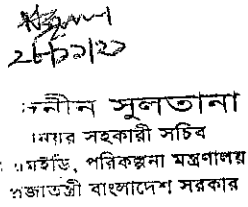 ২৮/১১/২১
নীন সুলতানা
নিয়র সহকারী সচিব
মইডি, পরিকল্পনা মন্ত্রণালয়
প্রজাতন্ত্রী বাংলাদেশ সরকার